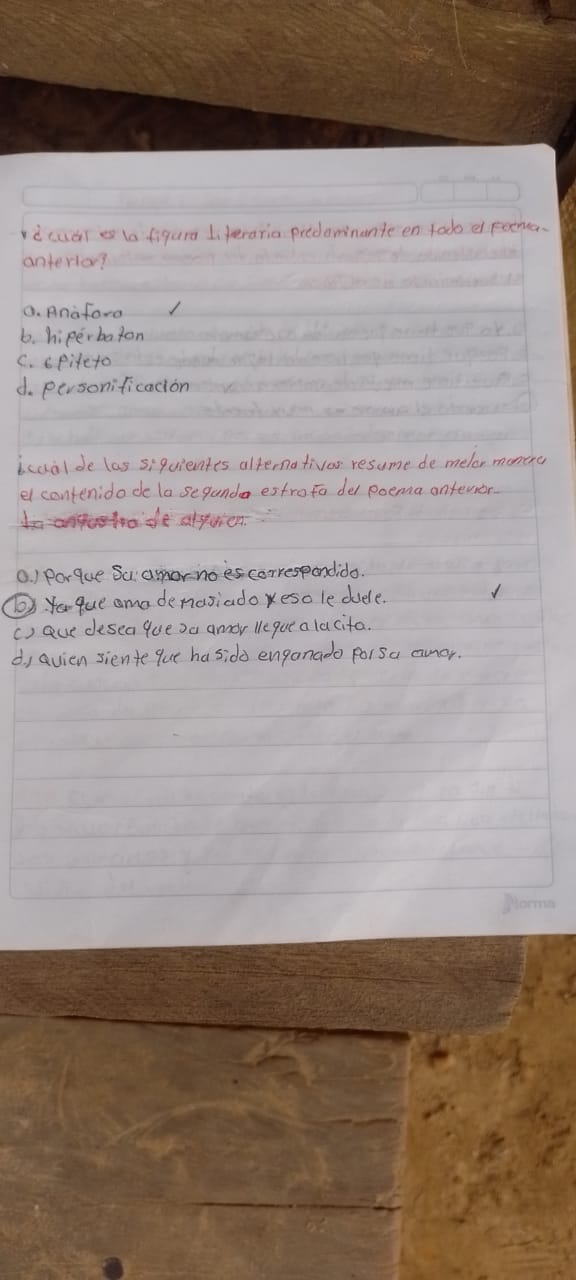 ¿cuál es la figura literaria predominante en todo el poema
anterior?
a. Anáfora ✓
b. hipérbaton
c. epíteto
d. personificación
¿cuál de las siguientes alternativas resume de mejor manera
el contenido de la segunda estrofa del poema anterior.
La angustia de alguien.
a.) porque su amor no es correspondido.
b) Ya que ama demasiado y eso le duele. ✓
c) que desea que su amor llegue a la cita.
d) quien siente que ha sido enganado por su amor.
Norma